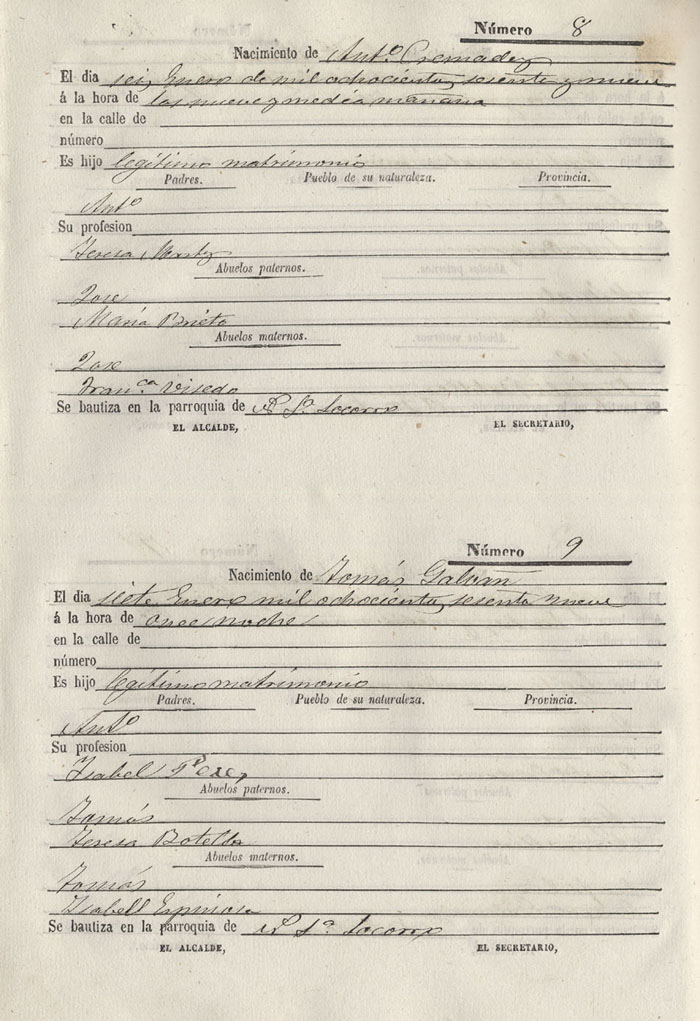 Número 8
Nacimiento de Antº Cremades
El dia seis Enero de mil ochocientos sesenta y nueve
á la hora de las nueve y media mañana
en la calle de
número
Es hijo legítimo matrimonio
Padres. Pueblo de su naturaleza. Provincia.
Antº
Su profesion
Teresa Martz
Abuelos paternos.
Jose
María Brieto
Abuelos maternos.
Jose
Franca Visedo
Se bautiza en la parroquia de Nª Sª Socorro
EL ALCALDE, EL SECRETARIO,
Número 9
Nacimiento de Tomás Galvañ
El dia siete Enero mil ochocientos sesenta nueve
á la hora de once noche
en la calle de
número
Es hijo legítimo matrimonio
Padres. Pueblo de su naturaleza. Provincia.
Antº
Su profesion
Isabel Perez
Abuelos paternos.
Tomás
Teresa Botella
Abuelos maternos.
Tomás
Isabell Espinosa
Se bautiza en la parroquia de Nª Sª Socorro
EL ALCALDE, EL SECRETARIO,